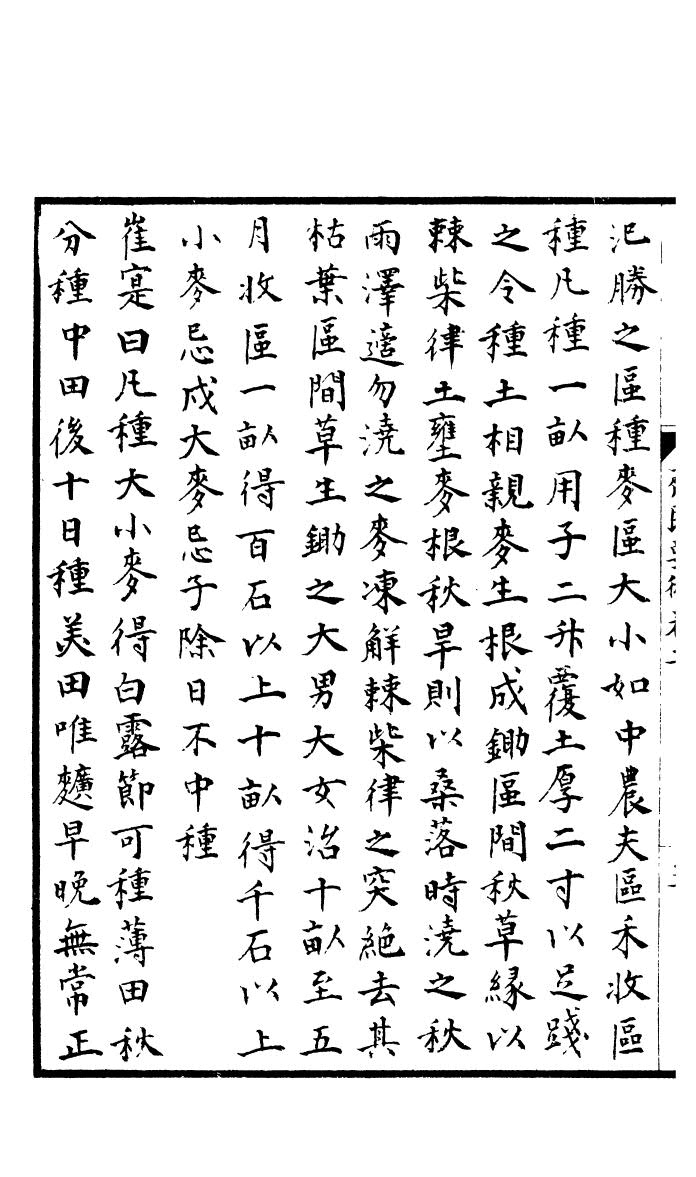 氾勝之區種麥區大小如中農夫區禾收區
種凡種一畝用子二升覆土厚二寸以足踐
之令種土相親麥生根成鋤區間秋草緣以
棘柴律土壅麥根秋旱則以桑落時澆之秋
雨澤適勿澆之麥凍解棘柴律之突絶去其
枯葉區間草生鋤之大男大女治十畝至五
月收區一畝得百石以上十畝得千石以上
小麥忌戍大麥忌子除日不中種
崔寔曰凡種大小麥得白露節可種薄田秋
分種中田後十日種美田唯䵃早晚無常正